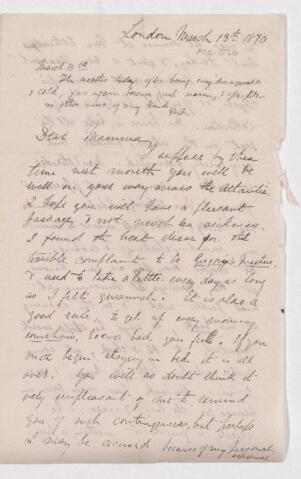 London March 13th 1870
March 14th
The weather today, after being very disagreeable
& cold, has again become
no other news, of any kind
Dear Mamma,
I suppose by this
time next month you will be
well on your way across the Atlantic
I hope you will have a pleasant
passage, & not much sea sickness.
I found the best thing for that
terrible complaint to be
I used to take a little every day as long
as I felt qualmish. It is also a
good rule, to get up every morning
somehow, however bad you feel. If you
once begin staying in bed it is all
over. You will no doubt think it
very unpleasant of me to remind
you of such contingencies, but perhaps
I may be excused because of my personal
experience